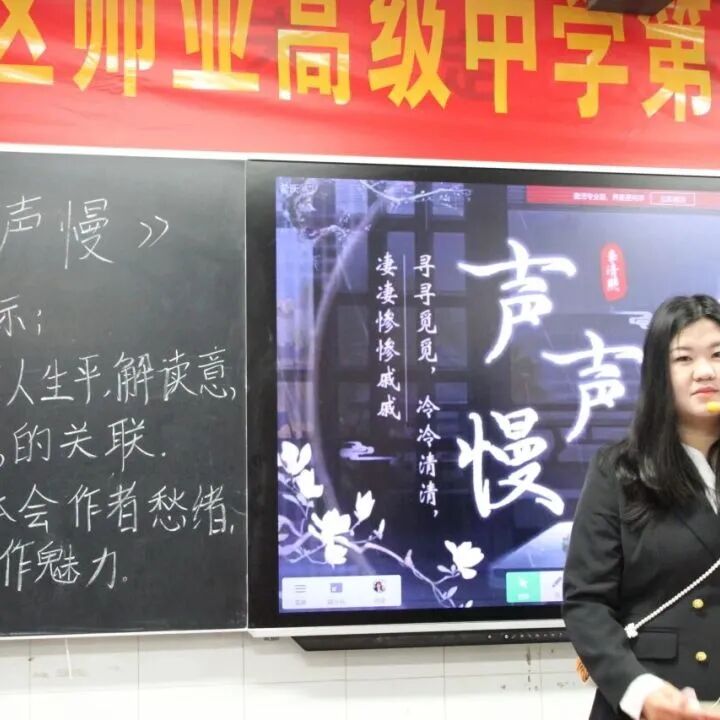 区师业高级中学第
声慢》
示；
人生平，解读意，
的关联．
体会作者愁绪，
作魅力．
声声慢
李清照
寻寻觅觅，冷冷清清，
凄凄惨惨戚戚